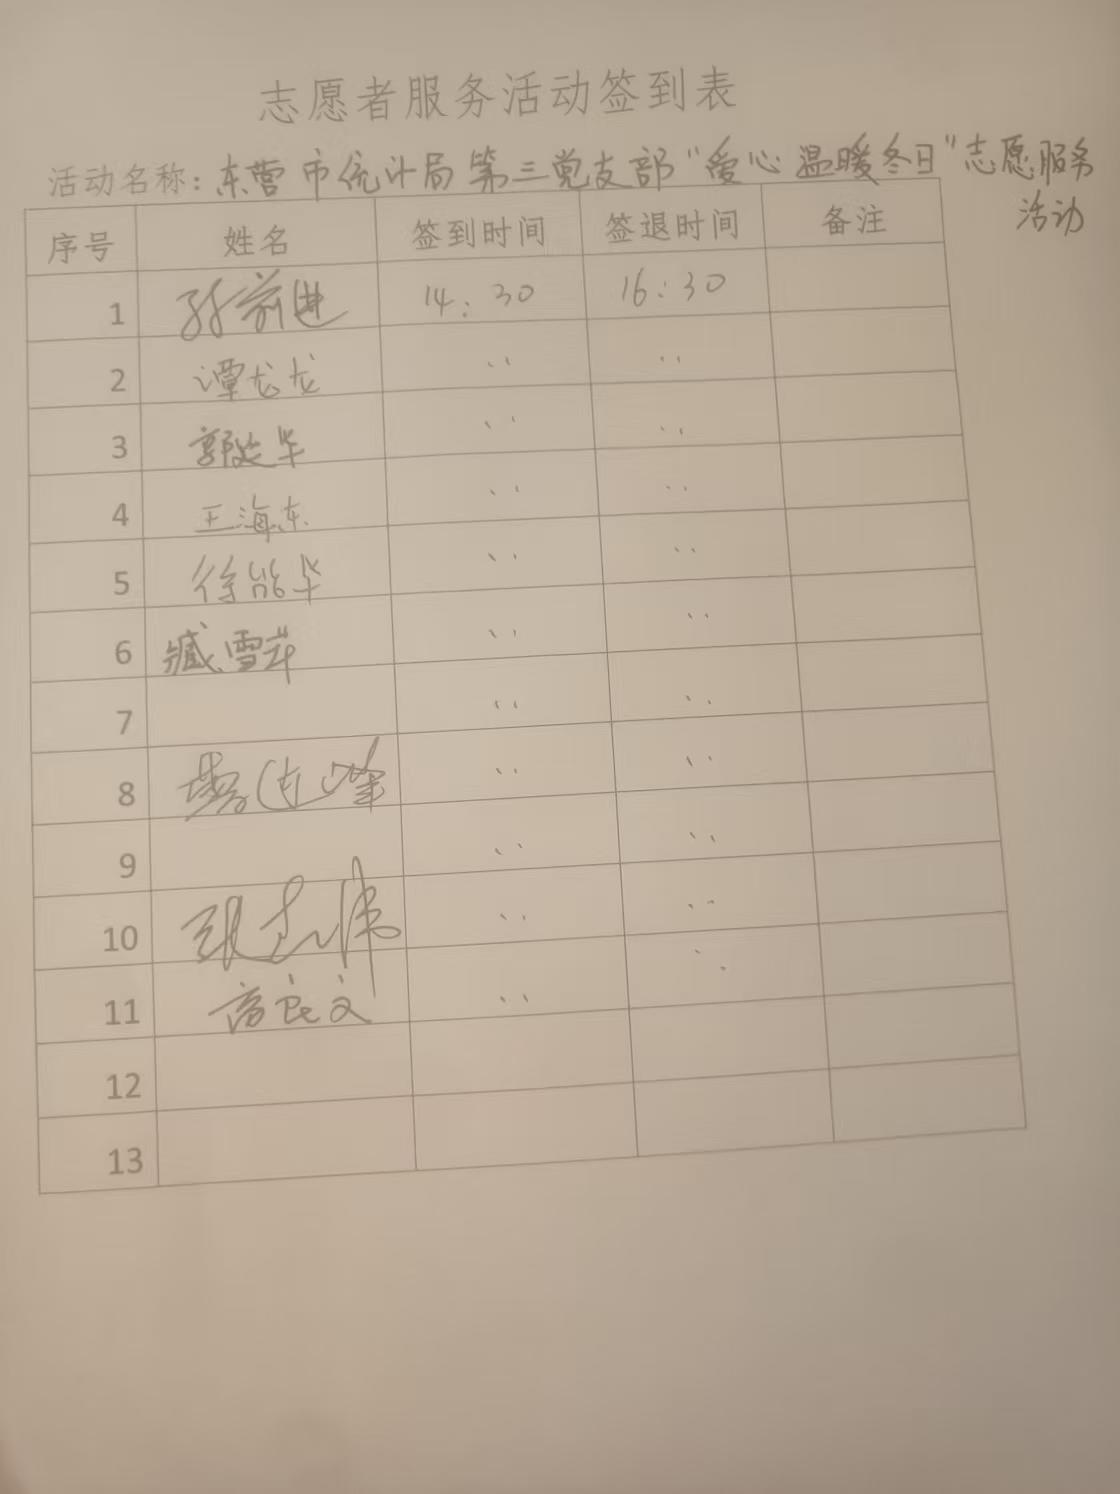 志愿者服务活动签到表
活动名称：东营市统计局第三党支部“爱心温暖冬日”志愿服务
活动
序号 姓名 签到时间 签退时间 备注
1 孙前进 14:30 16:30
2 谭龙龙 、、 、、
3 郭延华 、、 、、
4 王海东 、、 、、
5 徐能华 、、 、、
6 臧雪 、、 、、
7 、、 、、
8 、、 、、
9 、、 、、
10 张志伟 、、 、、
11 商良文 、、 、、
12
13